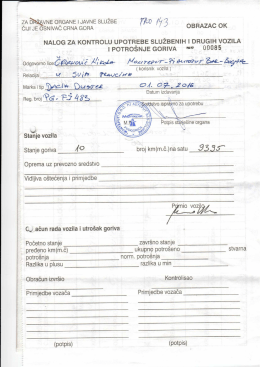 ZA DRŽAVNE ORGANE I JAVNE SLUŽBE
ČIJI JE OSNIVAČ CRNA GORA
TRO 143
OBRAZAC OK
NALOG ZA KONTROLU UPOTREBE SLUŽBENIH I DRUGIH VOZILA
I POTROŠNJE GORIVA 00085
Odgovorno lice
(korisnik vozila)
Relacija U SVIM PRAVCIMA
Marka i tip DACIA DUSTER 01.07.2016
Datum izdavanja
Reg. broj PG-FJ 483
Potpis službenog organa
Stanje vozila
Stanje goriva 10 broj km(m.č.)na satu 9395
Oprema uz prevozno sredstvo
Vidljiva oštećenja i primjedbe
Primio vozilo
račun rada vozila i utrošak goriva
Početno stanje završno stanje
pređeno km(m.č) ukupno potrošeno stvarna
potrošnja norm. potrošnja
Razlika u plusu razlika u min
Obračun izvršio Kontrolisao
Primjedbe vozača Primjedbe vozača
(potpis) (potpis)